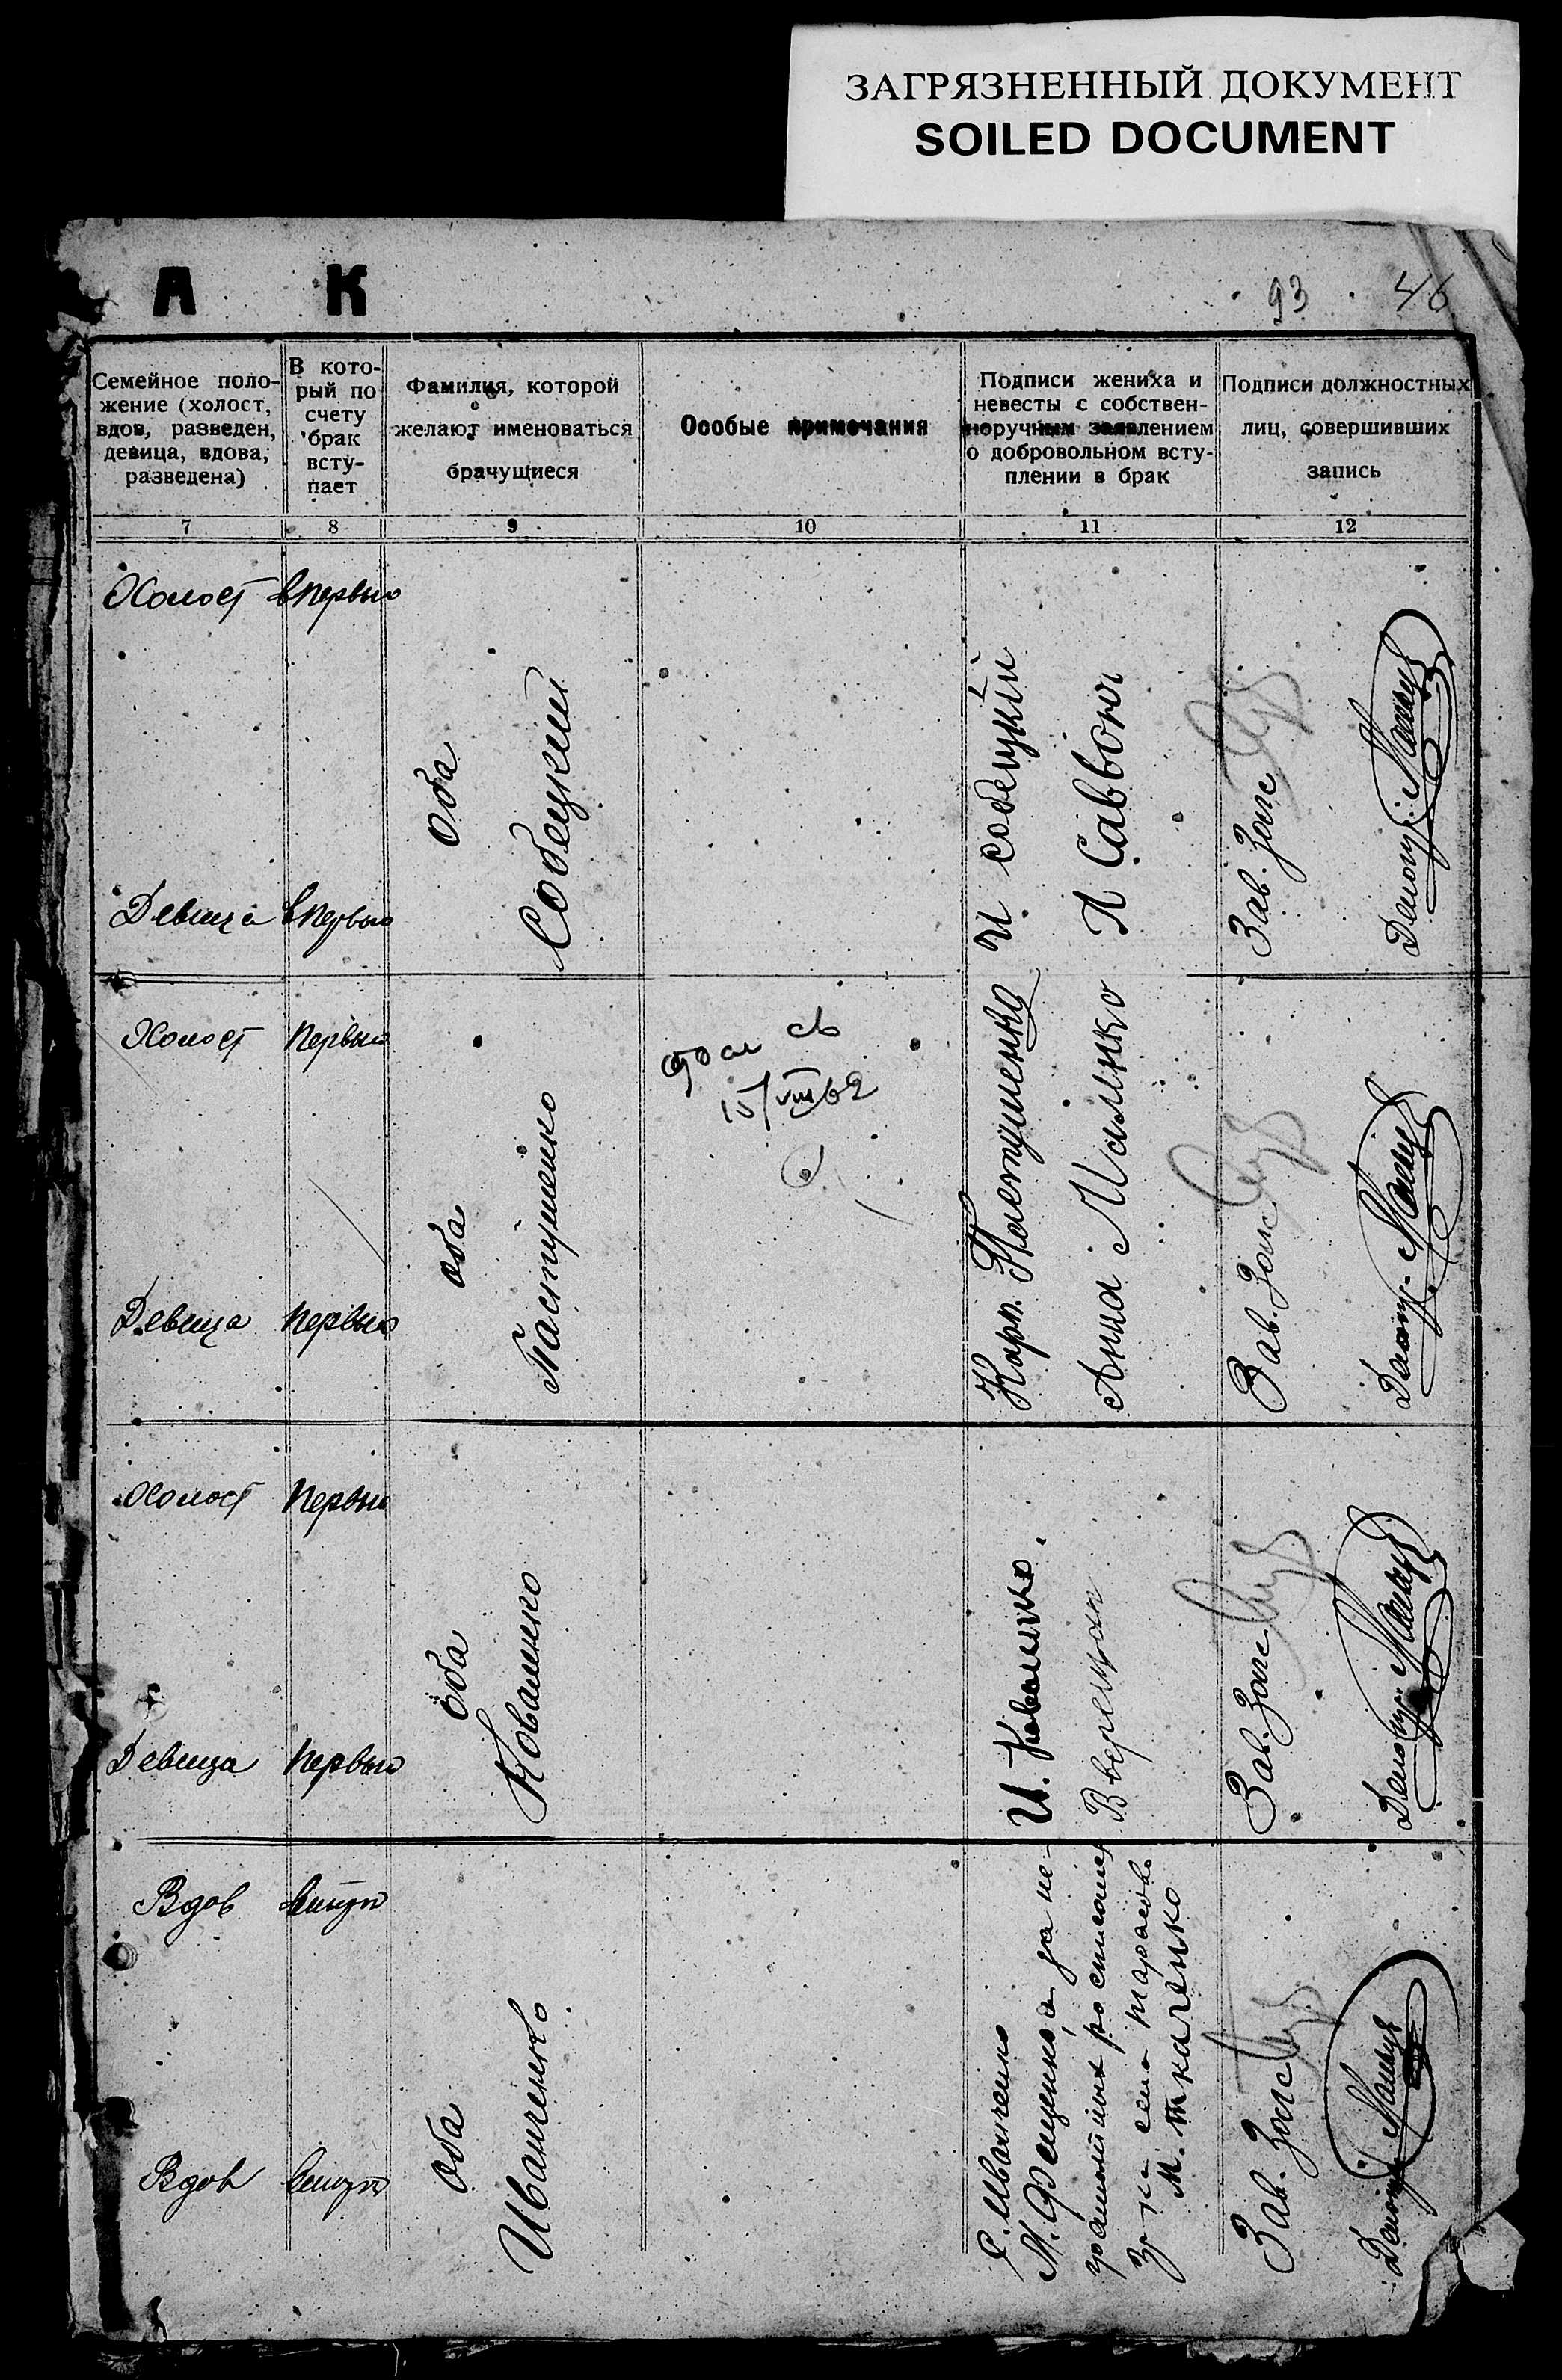 ЗАГРЯЗНЕННЫЙ ДОКУМЕНТ
SOILED DOCUMENT
А К
93 46
Семейное поло-
жение (холост,
вдов, разведен,
девица, вдова,
разведена)
В кото-
рый по
счету
брак
всту-
пает
Фамилия, которой
желают именоваться
брачущиеся
Особые примечания
Подписи жениха и
невесты с собствен-
норучным заявлением
о добровольном всту-
плении в брак
Подписи должностных
лиц, совершивших
запись
7 8 9 10 11 12
Холост впервые
Девица впервые
Оба
Собецкий
И Собецкий
П Саввон
Зав. Загс
Делопр.
Холост первый
Девица первый
оба
Пастушенко
15/VIII 62
Карп. Пастушенко
Анна Малико
Зав. Загс
Делопр.
Холост первый
Девица первый
оба
Коваленко
И. Коваленко.
В веремчак
Зав. Загс
Делопр.
Вдов вступ
Вдов вступ
оба
Иванченко
С. Иванченко
М. Фещенко, а за не-
грамотных росписался
М. Ткаченко
Зав. Загс
Делопр.